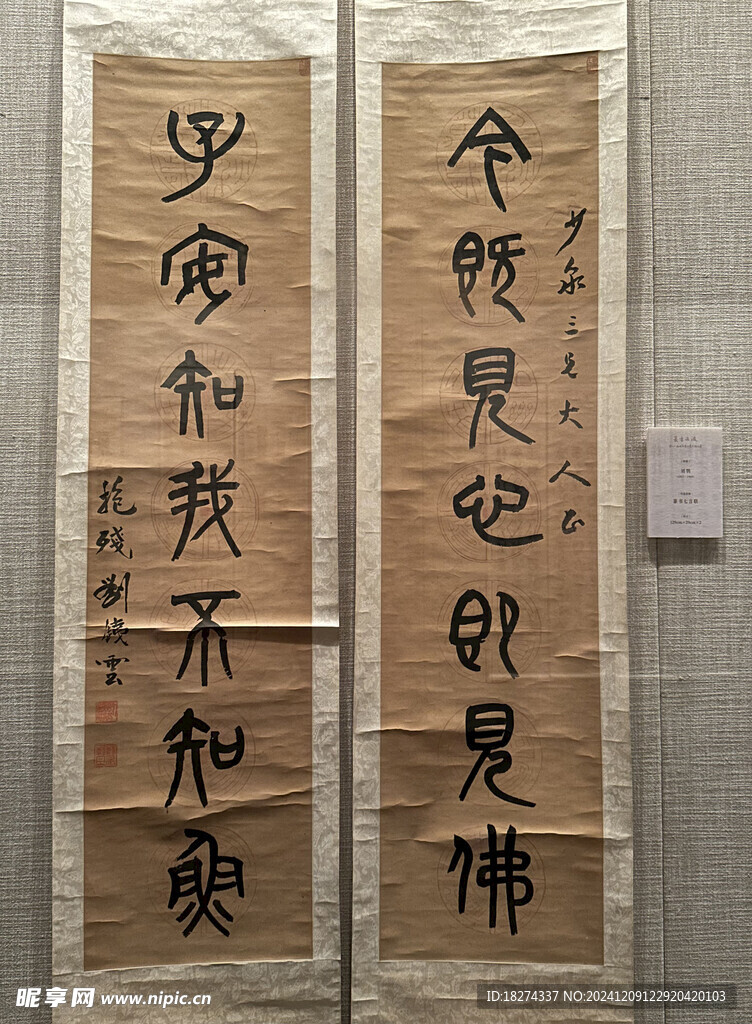 少泉三兄大人正
今既見心即見佛
子安知我不知魚
抱殘劉鐵雲
昵享网 www.nipic.cn
ID:18274337 NO:20241209122920420103